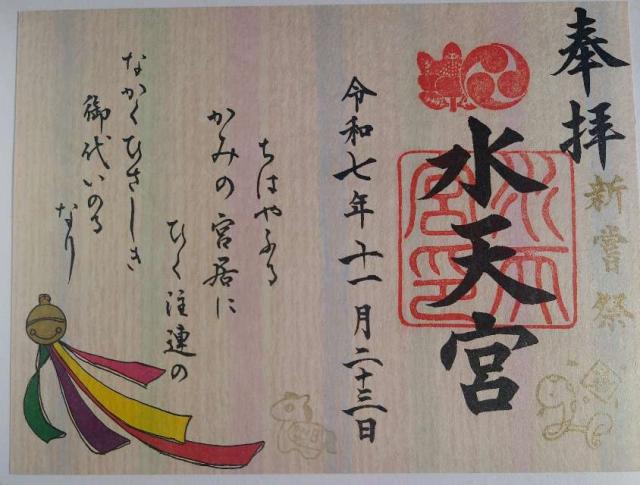 奉拝
新嘗祭
水天宮
水天宮印
令和七年十一月二十三日
ちはやふる
かみの宮居に
ひく注連の
なかくひさしき
御代いのる
なり